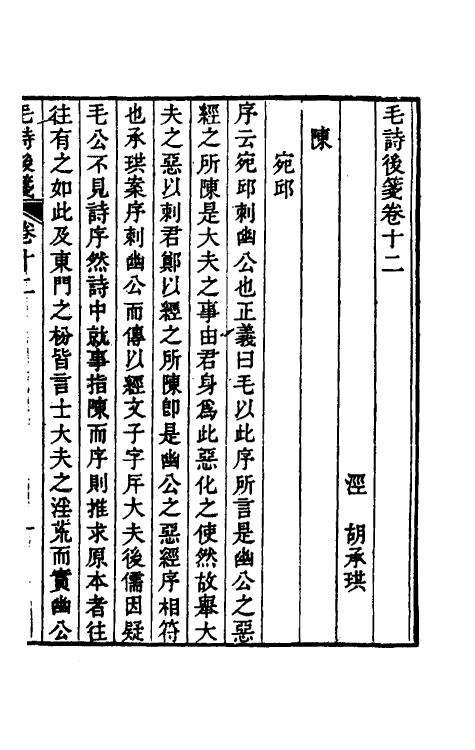 毛詩後箋卷十二
涇　胡承珙
陳
宛邱
序云宛邱刺幽公也正義曰毛以此序所言是幽公之惡
經之所陳是大夫之事由君身爲此惡化之使然故舉大
夫之惡以刺君鄭以經之所陳卽是幽公之惡經序相符
也承珙案序刺幽公而傳以經文子字斥大夫後儒因疑
毛公不見詩序然詩中就事指陳而序則推求原本者往
往有之如此及東門之枌皆言士大夫之淫荒而實幽公
毛詩後箋　卷十二